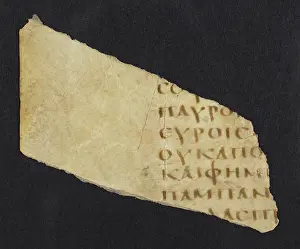 ϹΟ
ΠΑΥΡΟ
ϹΥΡΟΙϹ
ΟΥΚΑΠΟ
ΚΑΙΦΗΜ
ΠΑΜΠΑΝ
ΛΑϹΠ